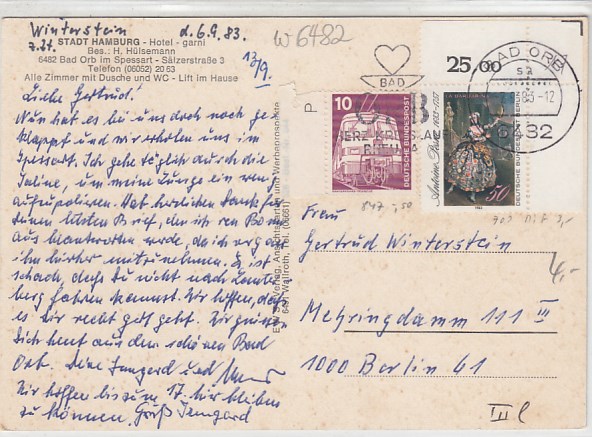 Winterstein d. 6.9.83.
z.Zt.
STADT HAMBURG - Hotel - garni
Bes.: H. Hülsemann
6482 Bad Orb im Spessart - Sälzerstraße 3
Telefon (06052) 20 63
Alle Zimmer mit Dusche und WC - Lift im Hause
W 6482
13/9.
Liebe Gertrud!
Nun hat es bei uns doch noch ge-
klappt und wir erholen uns im
Spessart. Ich gehe täglich durch die
Saline, um meine Lunge ein wenig
aufzupolieren. Hab herzlichen Dank für
Deinen letzten Brief, den ich von Bonn
aus beantworten werde, da ich vergaß
ihn hierher mitzunehmen. Es ist
schade, daß Du nicht nach
fahren kannst. Wir hoffen, daß
es Dir recht gut geht. Wir grüßen
Dich heut aus dem schönen Bad
Orb. Deine Irmgard und
Wir hoffen bis zum 17. hier bleiben
zu können. Gruß Irmgard
Verlag, Ansichtskarten und Werbeprospekte
6491 Wallroth, Tel. (06661)
P
BAD
ORB
HERZ KREISLAUF
25,00
BAD ORB
83-12
6482
10
DEUTSCHE BUNDESPOST
Antoine Pesne 1683-1757
DEUTSCHE BUNDESPOST BERLIN
50
1983
847 -,50
Frau
Gertrud Winterstein
4,-
Mehringdamm 111 III
1000 Berlin 61
III